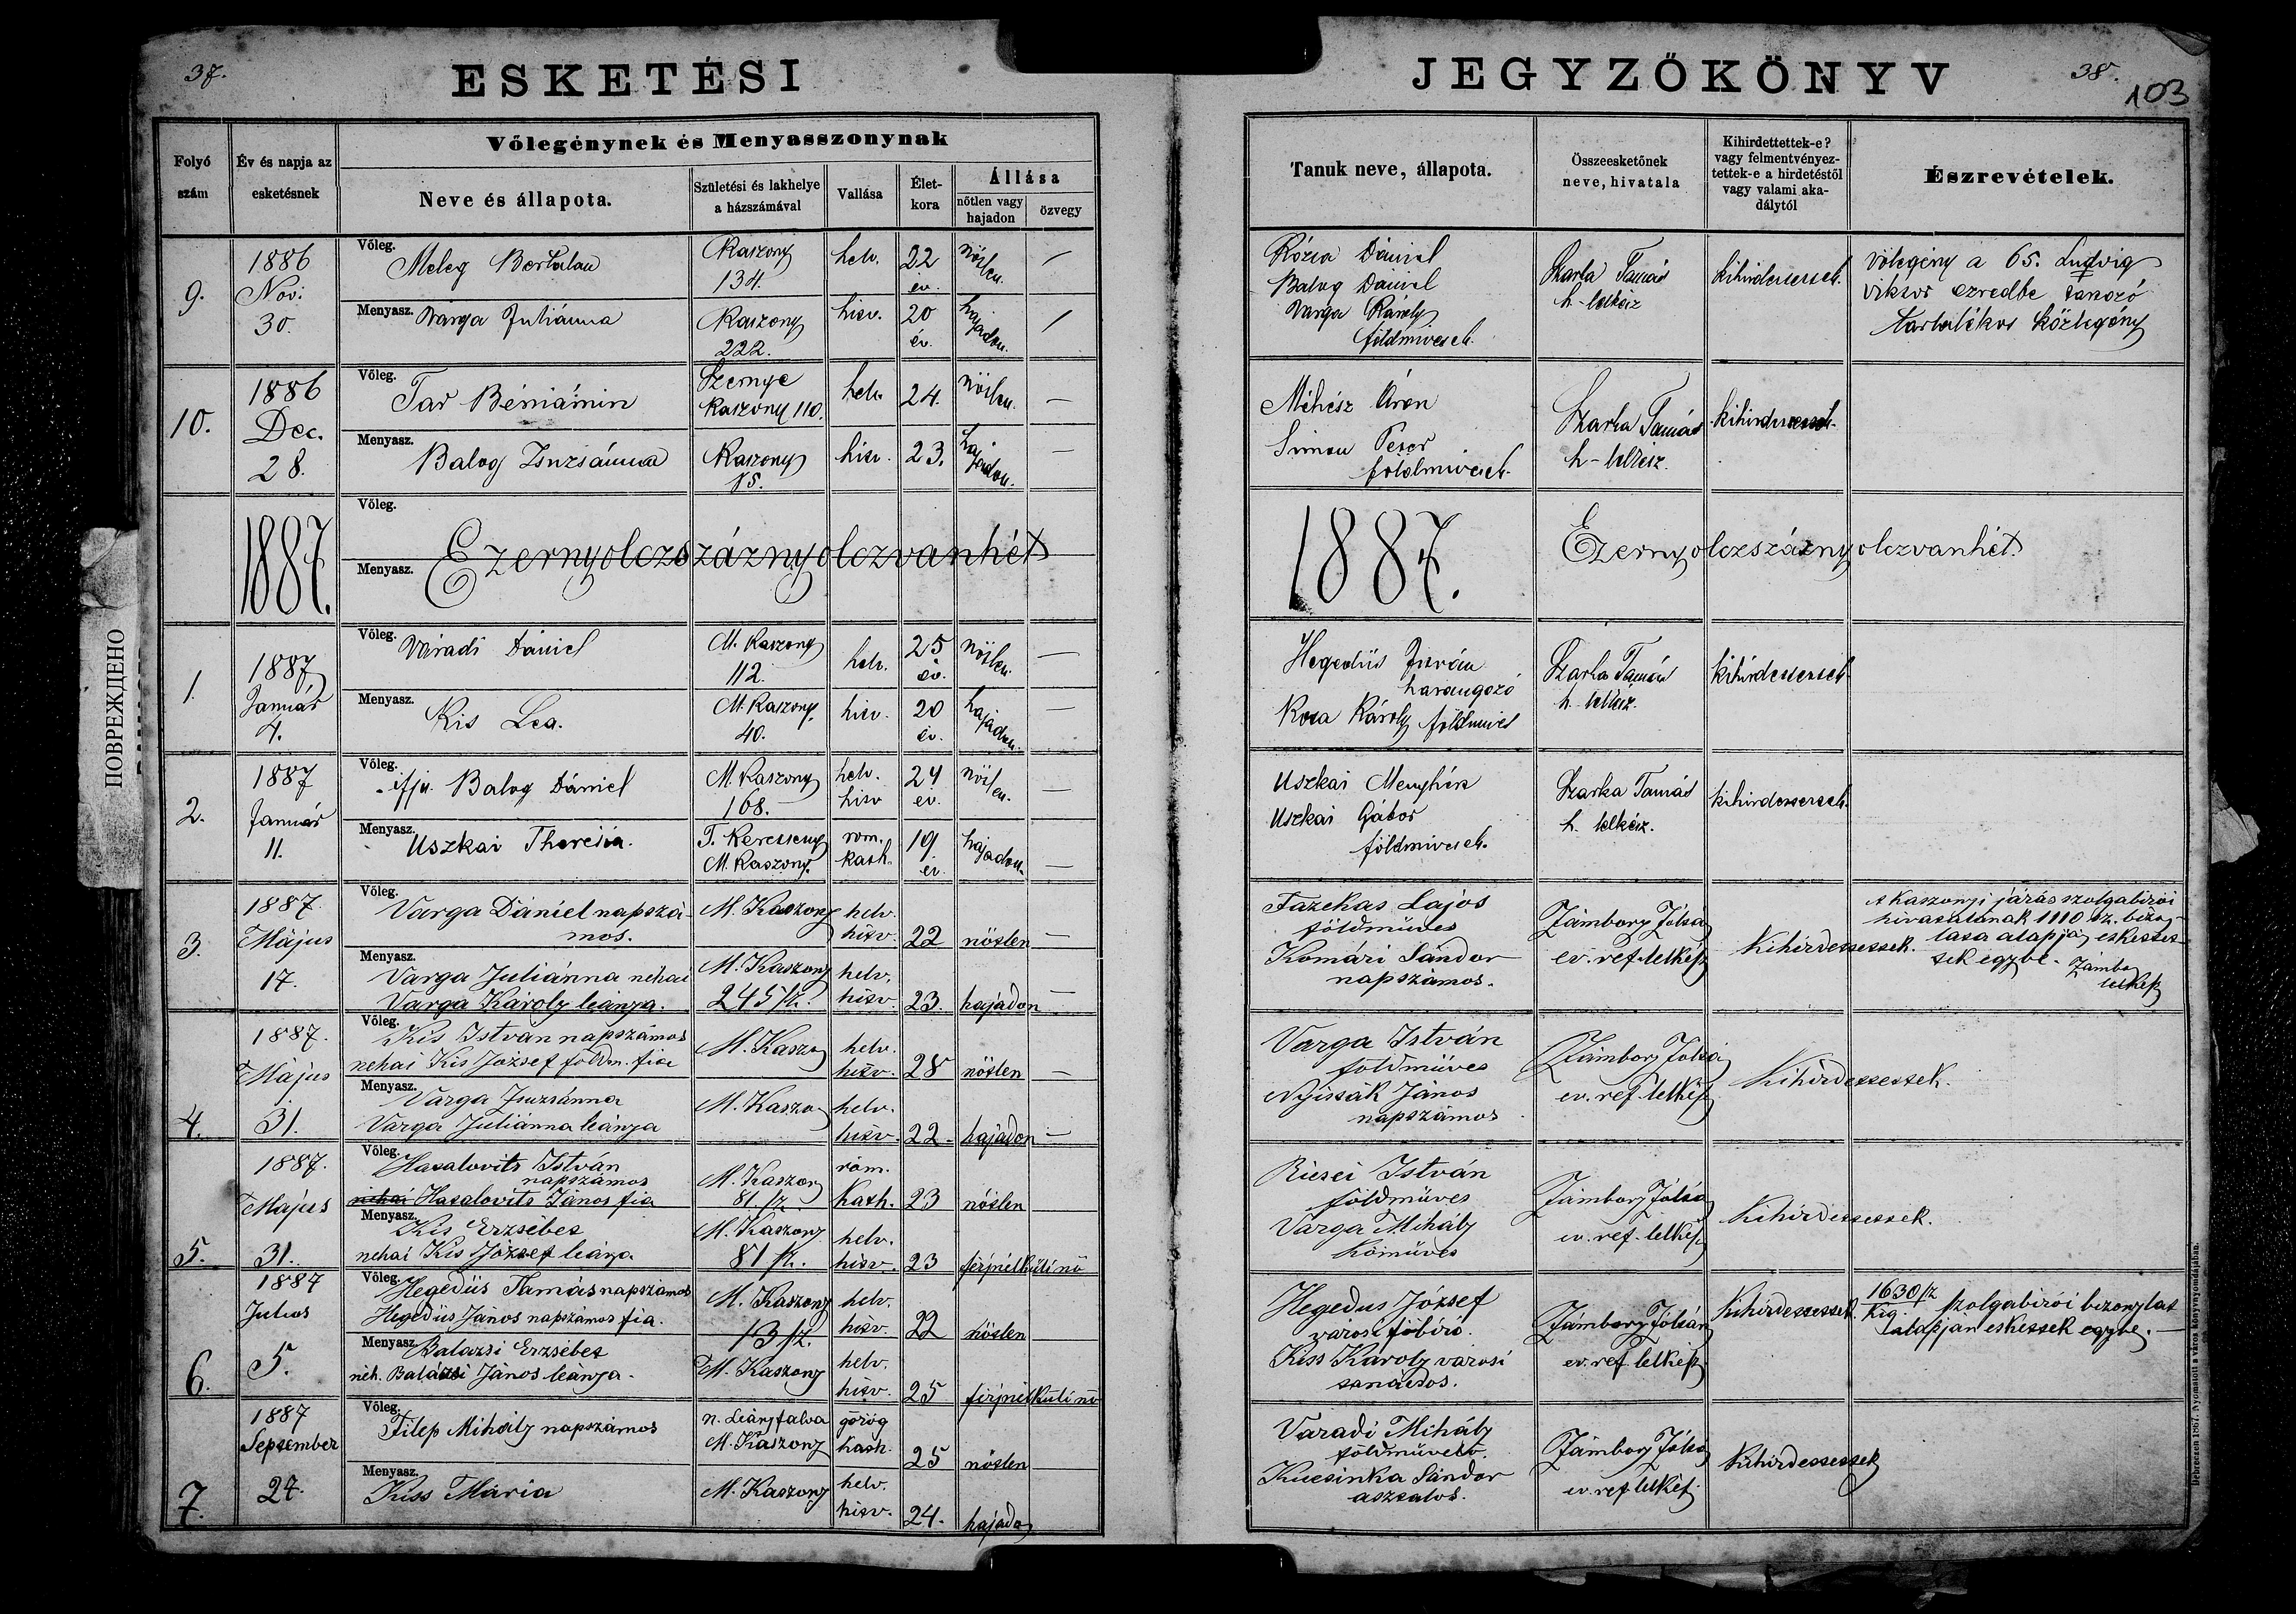 37.
ESKETÉSI
Folyó szám
Év és napja az esketésnek
Vőlegénynek és Menyasszonynak
Neve és állapota.
Születési és lakhelye a házszámával
Vallása
Élet-kora
Állása
nőtlen vagy hajadon
özvegy
9.
1886
Nov.
30.
Vőleg.
Meleg Bertalan
Kaszony
134.
helv.
22
év.
nőtlen.
Menyasz.
Varga Juliánna
Kaszony
222.
hitv.
20
év.
hajadon.
10.
1886
Dec.
28.
Vőleg.
Tar Béniámin
Szernye
Kaszony 110.
helv.
24.
nőtlen.
Menyasz.
Balog Zsuzsánna
Kaszony
hitv.
23.
hajadon.
1887.
Vőleg.
Menyasz.
Ezernyolczszáznyolczvanhét
1.
1887
Január
4.
Vőleg.
Váradi Dániel
M. Kaszony
112.
helv.
25
év.
nőtlen.
Menyasz.
Kis Lea.
M. Kaszony.
40.
hitv.
20
év.
hajadon.
2.
1887
Január
11.
Vőleg.
ifju. Balog Dániel
M. Kaszony
168.
helv.
hitv
24
év.
nőtlen.
Menyasz.
Uszkai Therésia.
T. Keresztuny
M. Kaszony.
rom.
kath.
19
év
hajadon.
3.
1887.
Május
17.
Vőleg.
Varga Dániel napszá-
mos.
M. Kaszony
helv.
hitv.
22
nőtlen
Menyasz.
Varga Juliánna néhai
Varga Károly leánya.
M. Kaszony
245 /sz.
helv.
hitv.
23.
hajadon
4.
1887.
Május
31.
Vőleg.
Kis István napszámos
nehai Kis József földm. fia
M. Kaszo
helv.
hitv.
28
nőtlen
Menyasz.
Varga Zsuzsánna
Varga Juliánna leánya
M. Kaszo
helv.
hitv.
22
hajadon
5.
1887.
Május
31.
Vőleg.
Hatalovits István
napszámos
néhai Hatalovits János fia
M. Kaszony
81. /sz.
róm.
Kath.
23
nőtlen
Menyasz.
Kis Erzsébet
nehai Kis József leánya
M. Kaszony
81 /sz.
helv.
hitv.
23
férjnélküli nő
6.
1887
Julius
5.
Vőleg.
Hegedűs Tamás napszámos
Hegedűs János napszámos fia.
M. Kaszony
13 /sz.
helv.
hitv.
22
nőtlen
Menyasz.
Balázsi Erzsébet
néh. Balázsi János leánya.
M. Kaszony
helv.
hitv.
25
férjnélküli nő
7.
1887
September
27.
Vőleg.
Filep Mihály napszámos
n. Leányfalva
M. Kaszony
görög
kath.
25
nőtlen
Menyasz.
Kiss Mária
M. Kaszony
helv.
hitv.
24.
hajado
ПОВРЕЖДЕНО
JEGYZŐKÖNYV
38.
103
Tanuk neve, állapota.
Összeesketőnek neve, hivatala
Kihirdettettek-e?
vagy felmentvényez-
tettek-e a hirdetéstől
vagy valami aka-
dálytól
Észrevételek.
Rózsa Dániel
Balog Dániel
Varga Károly
földmivesek.
Szarka Tamás
h-lelkész
kihirdettettek.
Vőlegény a 65. Ludvig
Viktor ezredbe tartozó
tartalékos közlegény
Méhész Áron
Simon Péter
földmivesek.
Szarka Tamás
h-lelkész.
kihirdettettek.
1887.
Ezernyolczszáznyolczvanhét.
Hegedűs István
harangozó
Kota Károly földmivel
Szarka Tamás
h. lelkész.
kihirdettettek
Uszkai Menyhért
Uszkai Gábor
földmivesek.
Szarka Tamás
h. lelkész.
kihirdettettek.
Fazekas Lajos
földműves
Komári Sándor
napszámos.
Zámbory Jólsá
ev. ref. lelkész
Kihirdettettek.
A kaszonyi járás szolgabirói
hivatalának 1110 sz. bizony-
lata alapján eskettet-
tek egybe. Zámbo
lelkész
Varga István
földműves
Nyissák János
napszámos
Zámbory Jólsá
ev. ref. lelkész
Kihirdettettek.
Ricsei István
földműves
Varga Mihály
kőműves
Zámbory Jólsá
ev. ref. lelkész
Kihirdettettek.
Hegedus József
városi főbíró.
Kiss Károly városi
tanácsos.
Zámbory Jólsán
ev. ref. lelkész
Kihirdettettek.
1630/sz
Kig. szolgabirói bizonylat
alapján eskettek egybe.
Váradi Mihály
földművelő.
Kucsinka Sándor
asztalos.
Zámbory Jólsá
ev. ref lelkész
Kihirdettettek
Debreczen 1867. Nyomatott a város könyvnyomdájában.